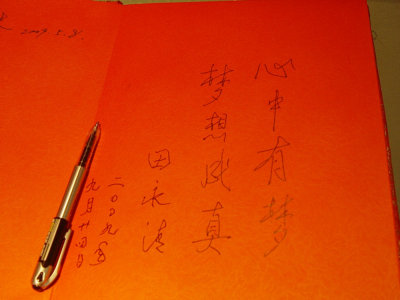 心中有梦
梦想成真
田永清
二〇〇九年
九月廿四日
2009.5.8.